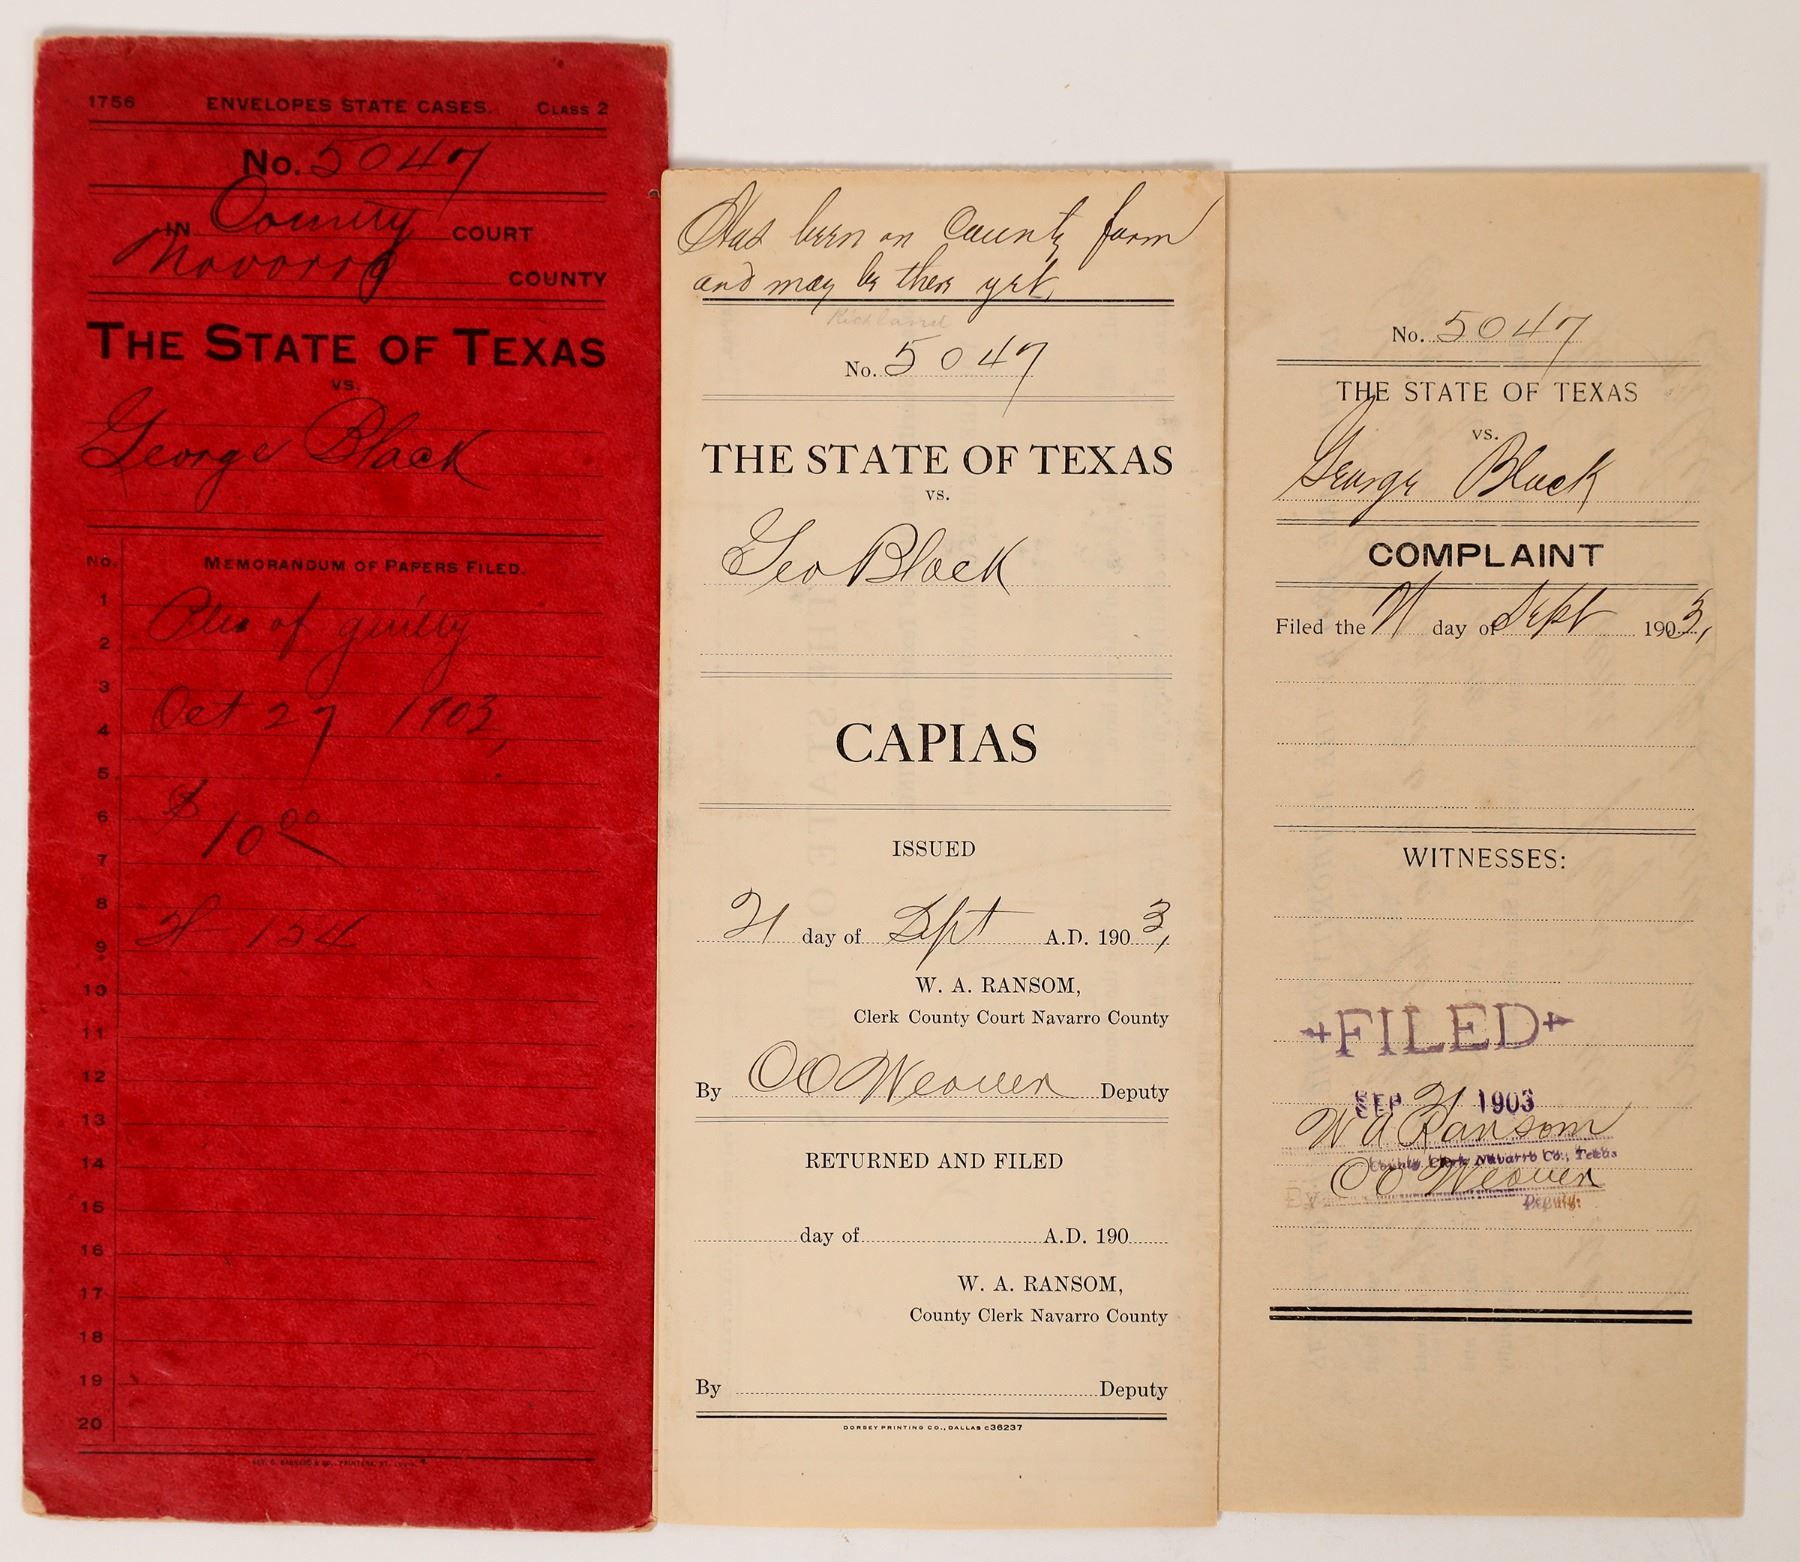 1756 ENVELOPES STATE CASES. CLASS 2
No. 5047
IN County COURT
Navarro COUNTY
THE STATE OF TEXAS
vs.
George Black
No. MEMORANDUM OF PAPERS FILED.
1
Plea of guilty
2
3
Oct 27 1903,
4
5
$
6
10 00
7
8
9
10
11
12
13
14
15
16
17
18
19
20
Has been on County farm
and may be there yet,
Richland
No. 5047
THE STATE OF TEXAS
vs.
Geo Black
CAPIAS
ISSUED
21 day of Sept A.D. 1903,
W. A. RANSOM,
Clerk County Court Navarro County
By OO Weaver Deputy
RETURNED AND FILED
day of A.D. 190
W. A. RANSOM,
County Clerk Navarro County
By Deputy
DORSEY PRINTING CO., DALLAS C36237
No. 5047
THE STATE OF TEXAS
vs.
George Black
COMPLAINT
Filed the 21 day of Sept 1903,
WITNESSES:
FILED
SEP 21 1903
W A Ransom
County Clerk Navarro Co., Texas
By OO Weaver
Deputy.